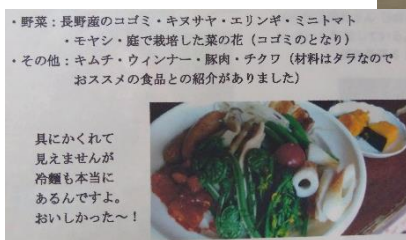 ・野菜：長野産のコゴミ・キヌサヤ・エリンギ・ミニトマト
・モヤシ・庭で栽培した菜の花（コゴミのとなり）
・その他：キムチ・ウィンナー・豚肉・チクワ（材料はタラなので
おススメの食品との紹介がありました）
具にかくれて
見えませんが
冷麺も本当に
あるんですよ。
おいしかった～！